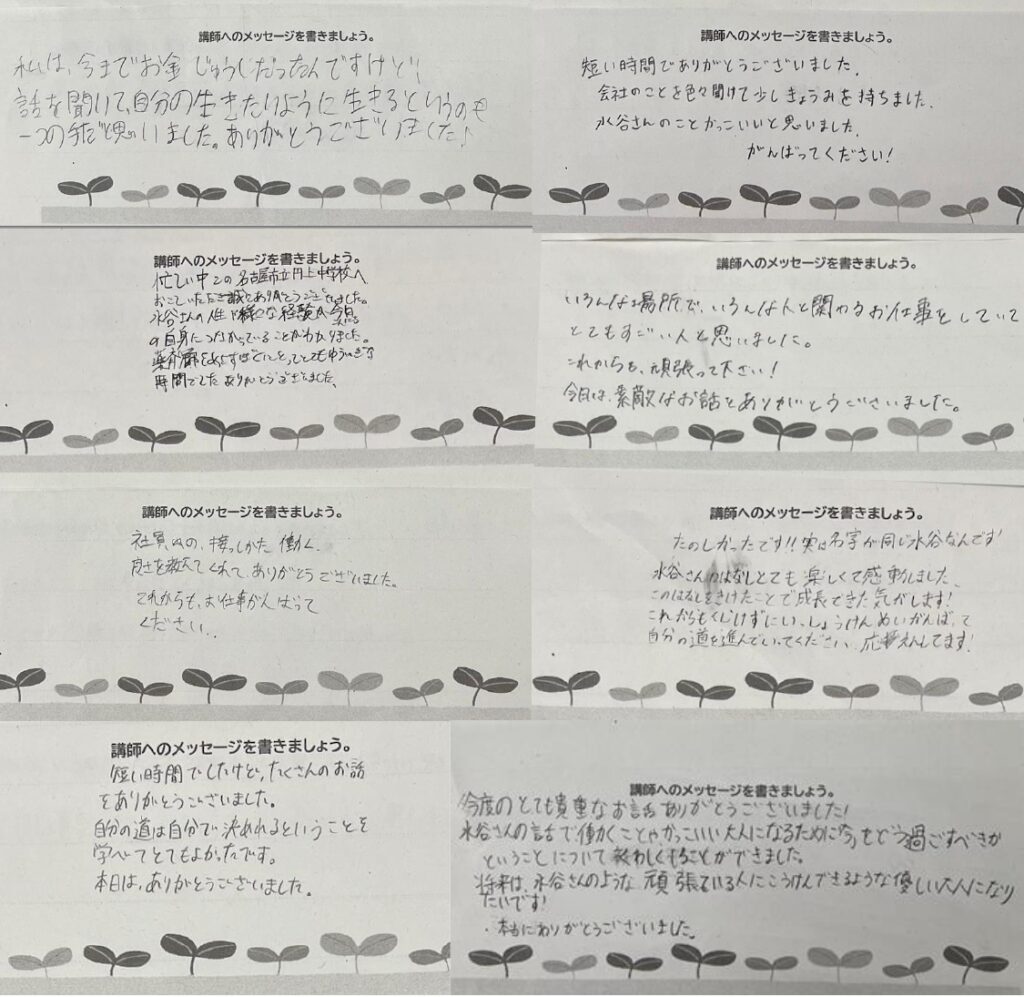 講師へのメッセージを書きましょう。
私は、今までお金じゅうしだったんですけど、
話を聞いて、自分の生きたいように生きるというのも
一つの手だと思いました。ありがとうございました♪
講師へのメッセージを書きましょう。
短い時間でありがとうございました。
会社のことを色々聞けて少しきょうみを持ちました。
水谷さんのことかっこいいと思いました。
がんばってください!
講師へのメッセージを書きましょう。
忙しい中この名古屋市立円上中学校へ
おこしいただき誠にありがとうございました。
水谷さんの人生で様々な経験が今日
の自身につながっていることがわかりました。
とってとてもゆういぎな
時間でした ありがとうございました。
講師へのメッセージを書きましょう。
いろんな場所で、いろんな人と関わるお仕事をしていて
とてもすごい人と思いました。
これからも、頑張って下さい!
今日は、素敵なお話をありがとうございました。
講師へのメッセージを書きましょう。
社員の、接しかた 働く
良さを教えてくれて、ありがとうございました。
これからも、お仕事がんばって
ください..
講師へのメッセージを書きましょう。
たのしかったです!!実は名字が同じ水谷なんです
水谷さんのはなしとても楽しくて感動しました、
このはなしをきけたことで成長できた気がします!
これからもくじけずにいっしょうけんめいがんばって
自分の道を進んでいってください、応援してます!
講師へのメッセージを書きましょう。
短い時間でしたけど、たくさんのお話
をありがとうございました。
自分の道は自分で決めれるということを
学べてとてもよかったです。
本日は、ありがとうございました。
講師へのメッセージを書きましょう。
今度のとても貴重なお話ありがとうございました!
水谷さんの話で働くことやかっこいい大人になるために今をどう過ごすべきか
ということについて くわしくきることができました。
将来は、水谷さんのような頑張ている人にこうけんできるような優しい大人になり
たいです!
・本当にありがとうございました。